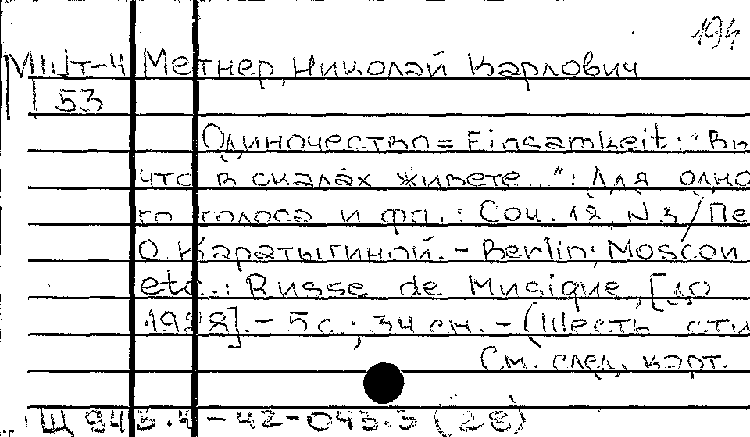 194
МШт-4 Метнер, Николай Карлович
53
Одиночество = Einsamkeit: "Вы
что в скалах живете...": Для одно
го голоса и фп.: Соч. 18, N 3 / Пе
О. Каратыгиной. - Berlin; Moscou
etc.: Russe de Musique, [до
1928]. - 5 с.; 34 см. - (Шесть сти
См. след. карт.
Щ 943.4-42-043.3 (28)